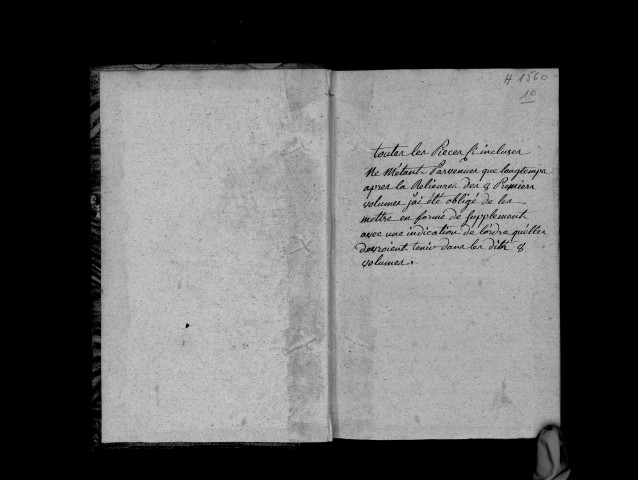 H 1560
10
toutes les Pieces ſi incluses
Ne M'étant Parvenues que longtemps
apres la Relieures des 8 Premiers
volumes j'ai été obligé de les
mettre en forme de supplement
avec une indication de l'ordre quélles
devroient tenir dans les dits 8
volumes.